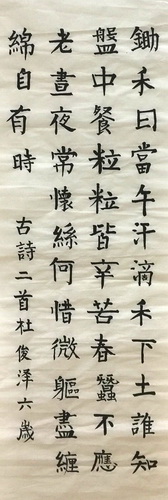 鋤禾日當午汗滴禾下土誰知
盤中餐粒粒皆辛苦春蠶不應
老晝夜常懷絲何惜微軀盡纏
綿自有時
古詩二首杜俊泽六歲